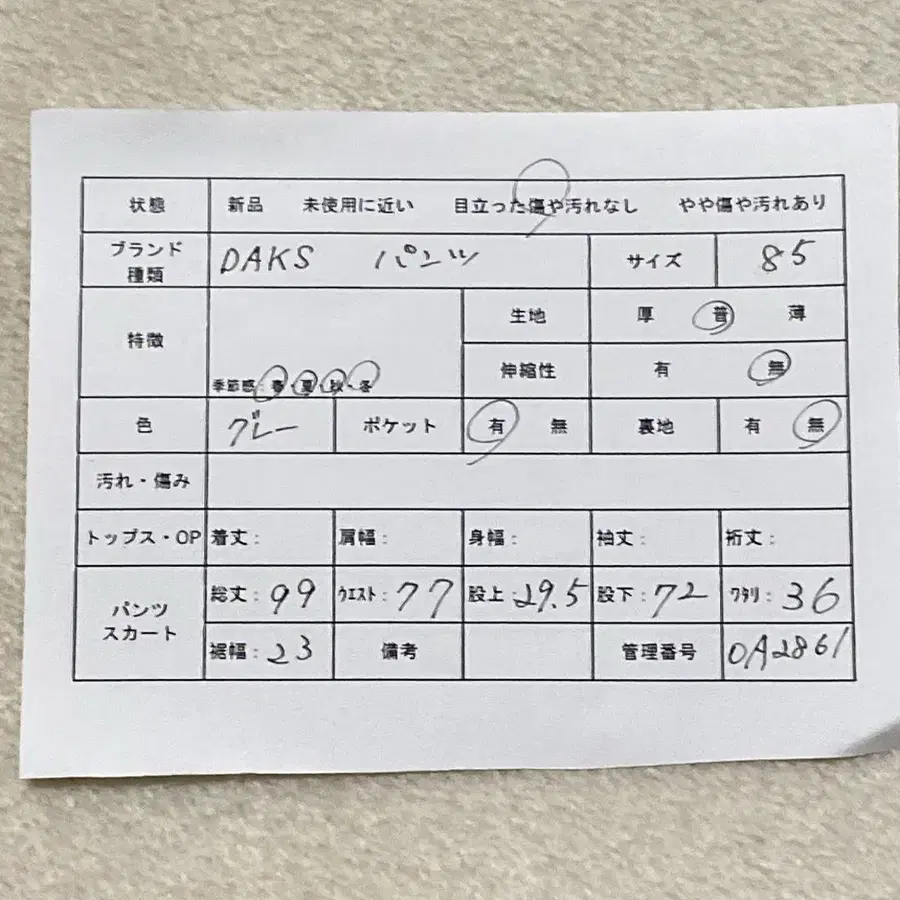 状態 新品 未使用に近い 目立った傷や汚れなし やや傷や汚れあり
ブランド
種類 DAKS パンツ サイズ 85
特徴 生地 厚 普 薄
季節感:春・夏・秋・冬 伸縮性 有 無
色 グレー ポケット 有 無 裏地 有 無
汚れ・傷み
トップス・OP 着丈: 肩幅: 身幅: 袖丈: 裄丈:
パンツ
スカート 総丈:99 ウエスト:77 股上:29.5 股下:72 ワタリ:36
裾幅:23 備考 管理番号 OA2861